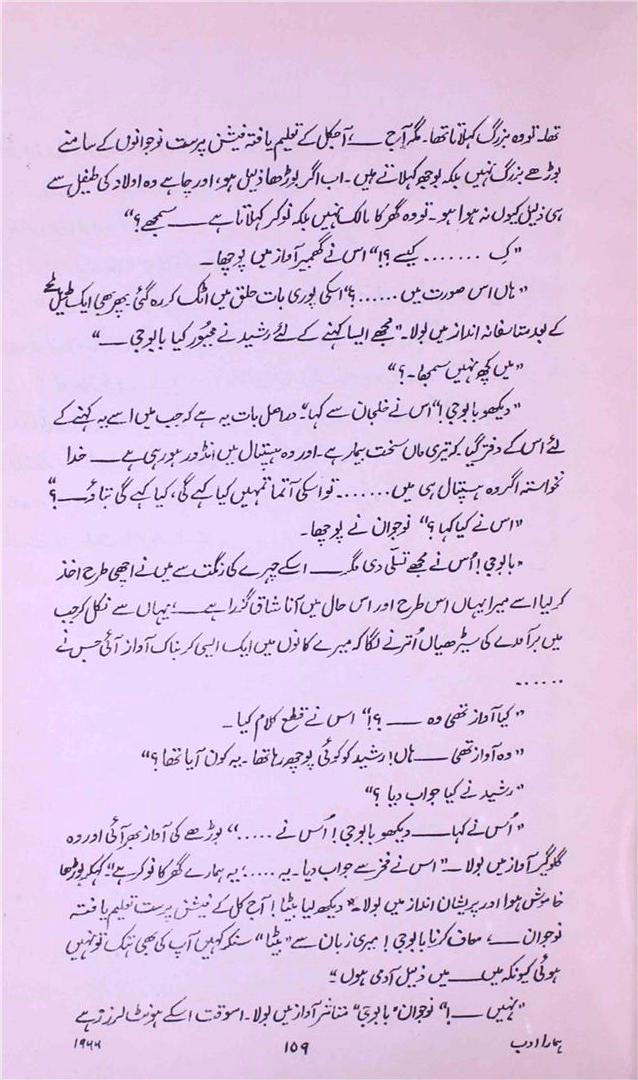 تھا۔ تو وہ بزرگ کہلاتا تھا۔ مگر آج ــــ، آجکل کے تعلیم یافتہ فیشن پرست نوجوانوں کے سامنے
بوڑھے بزرگ نہیں بلکہ بوجھ کہلاتے ہیں۔ اب اگر بوڑھا ذلیل ہو، اور چاہے وہ اولاد کی طفیل سے
ہی ذلیل کیوں نہ ہوا ہو۔ تو وہ گھر کا مالک نہیں بلکہ نوکر کہلاتا ہے ــــ سمجھے؟"
"کِ ....... کیسے ؟!" اس نے گھمبیر آواز میں پوچھا۔
"ہاں اس صورت میں ......؟" اسکی پوری بات حلق میں اٹک کر رہ گئی پھر بھی ایک طویل لمحے
کے بعد متاسفانہ انداز میں بولا۔ "مجھے ایسا کہنے کے لئے رشید نے مجبور کیا بابوجی ــــ"
"میں کچھ نہیں سمجھا۔؟"
"دیکھو بابوجی!" اس نے خلجان سے کہا "دراصل بات یہ ہے کہ جب میں اسے یہ کہنے کے
لئے اس کے دفتر گیا کہ تیری ماں سخت بیمار ہے۔ اور وہ ہسپتال میں انڈور ہو رہی ہے ــــ خدا
نخواستہ اگر وہ ہسپتال ہی میں ....... تو اسکی آتما تمہیں کیا کہے گی، کیا کہے گی بتاؤ ــــ؟"
"اس نے کیا کہا؟" نوجوان نے پوچھا۔
"بابوجی! اُس نے مجھے تسلّی دی مگر ــــ اسکے چہرے کی رنگت سے میں نے اچھی طرح اخذ
کر لیا اسے میرا یہاں اس طرح اور اس حال میں آنا شاق گزرا ہے ــــ؛ یہاں سے نکل کر جب
میں برآمدے کی سیڑھیاں اُترنے لگا کہ میرے کانوں میں ایک ایسی کربناک آواز آئی جس نے
......
"کیا آواز تھی وہ ــــ؟!" اس نے قطع کلام کیا۔
"وہ آواز تھی ــــ ہاں! رشید کو کوئی پوچھ رہا تھا۔ یہ کون آیا تھا؟"
"رشید نے کیا جواب دیا؟"
"اُس نے کہا ــــ دیکھو بابوجی! اُس نے ....." بوڑھے کی آواز بھر آئی اور وہ
گلوگیر آواز میں بولا۔ "اس نے فخر سے جواب دیا۔ یہ ....؛ یہ ہمارے گھر کا نوکر ہے" کہکر بوڑھا
خاموش ہوا اور پریشان انداز میں بولا۔ "دیکھ لیا بیٹا! آج کل کے فیشن پرست تعلیم یافتہ
نوجوان ــــ، معاف کرنا بابوجی! میری زبان سے "بیٹا" سنکر کہیں آپ کی بھی ہتک تو نہیں
ہوئی کیونکہ میں ــــ میں ذلیل آدمی ہوں۔"
"نہیں ــــ!" نوجوان "بابوجی" متاثر آواز میں بولا۔ اسوقت اسکے ہونٹ لرز رہے
ہمارا ادب ۱۵۹ ۱۹۶۶